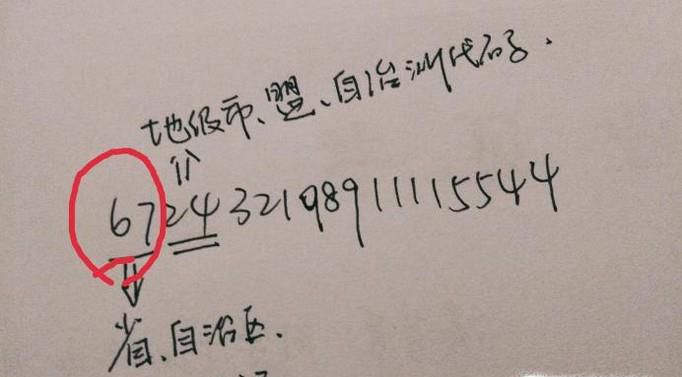 地级市、盟、自治州代码.
672432198911115544
省、自治区、